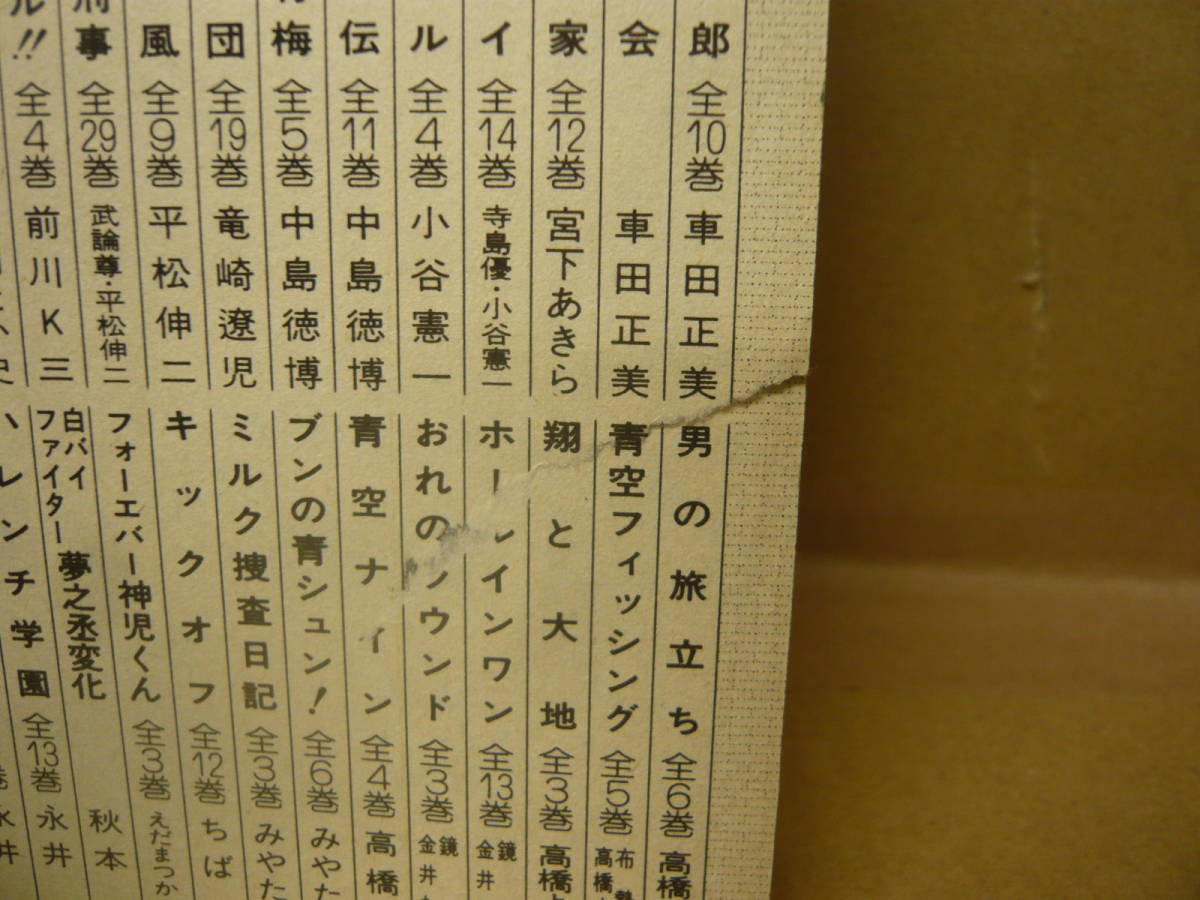 郎 全10巻 車田正美
会 車田正美
家 全12巻 宮下あきら
イ 全14巻 寺島優・小谷憲一
ル 全4巻 小谷憲一
伝 全11巻 中島徳博
梅 全5巻 中島徳博
団 全19巻 竜崎遼児
風 全9巻 平松伸二
事 全29巻 武論尊・平松伸二
ル!! 全4巻 前川K三
史
男の旅立ち 全6巻 高橋
青空フィッシング 全5巻 布勢 高橋
翔と大地 全3巻 高橋
ホールインワン 全13巻 鏡 金井
おれのウンド 全3巻 鏡 金井
青空ナイン 全4巻 高橋
ブンの青シュン! 全6巻 みやた
ミルク捜査日記 全3巻 みやた
キックオフ 全12巻 ちば
フォーエバー神児くん 全3巻 えだまつか
白バイファイター 夢之丞変化 秋本
ハレンチ学園 全13巻 永井
巻 永井